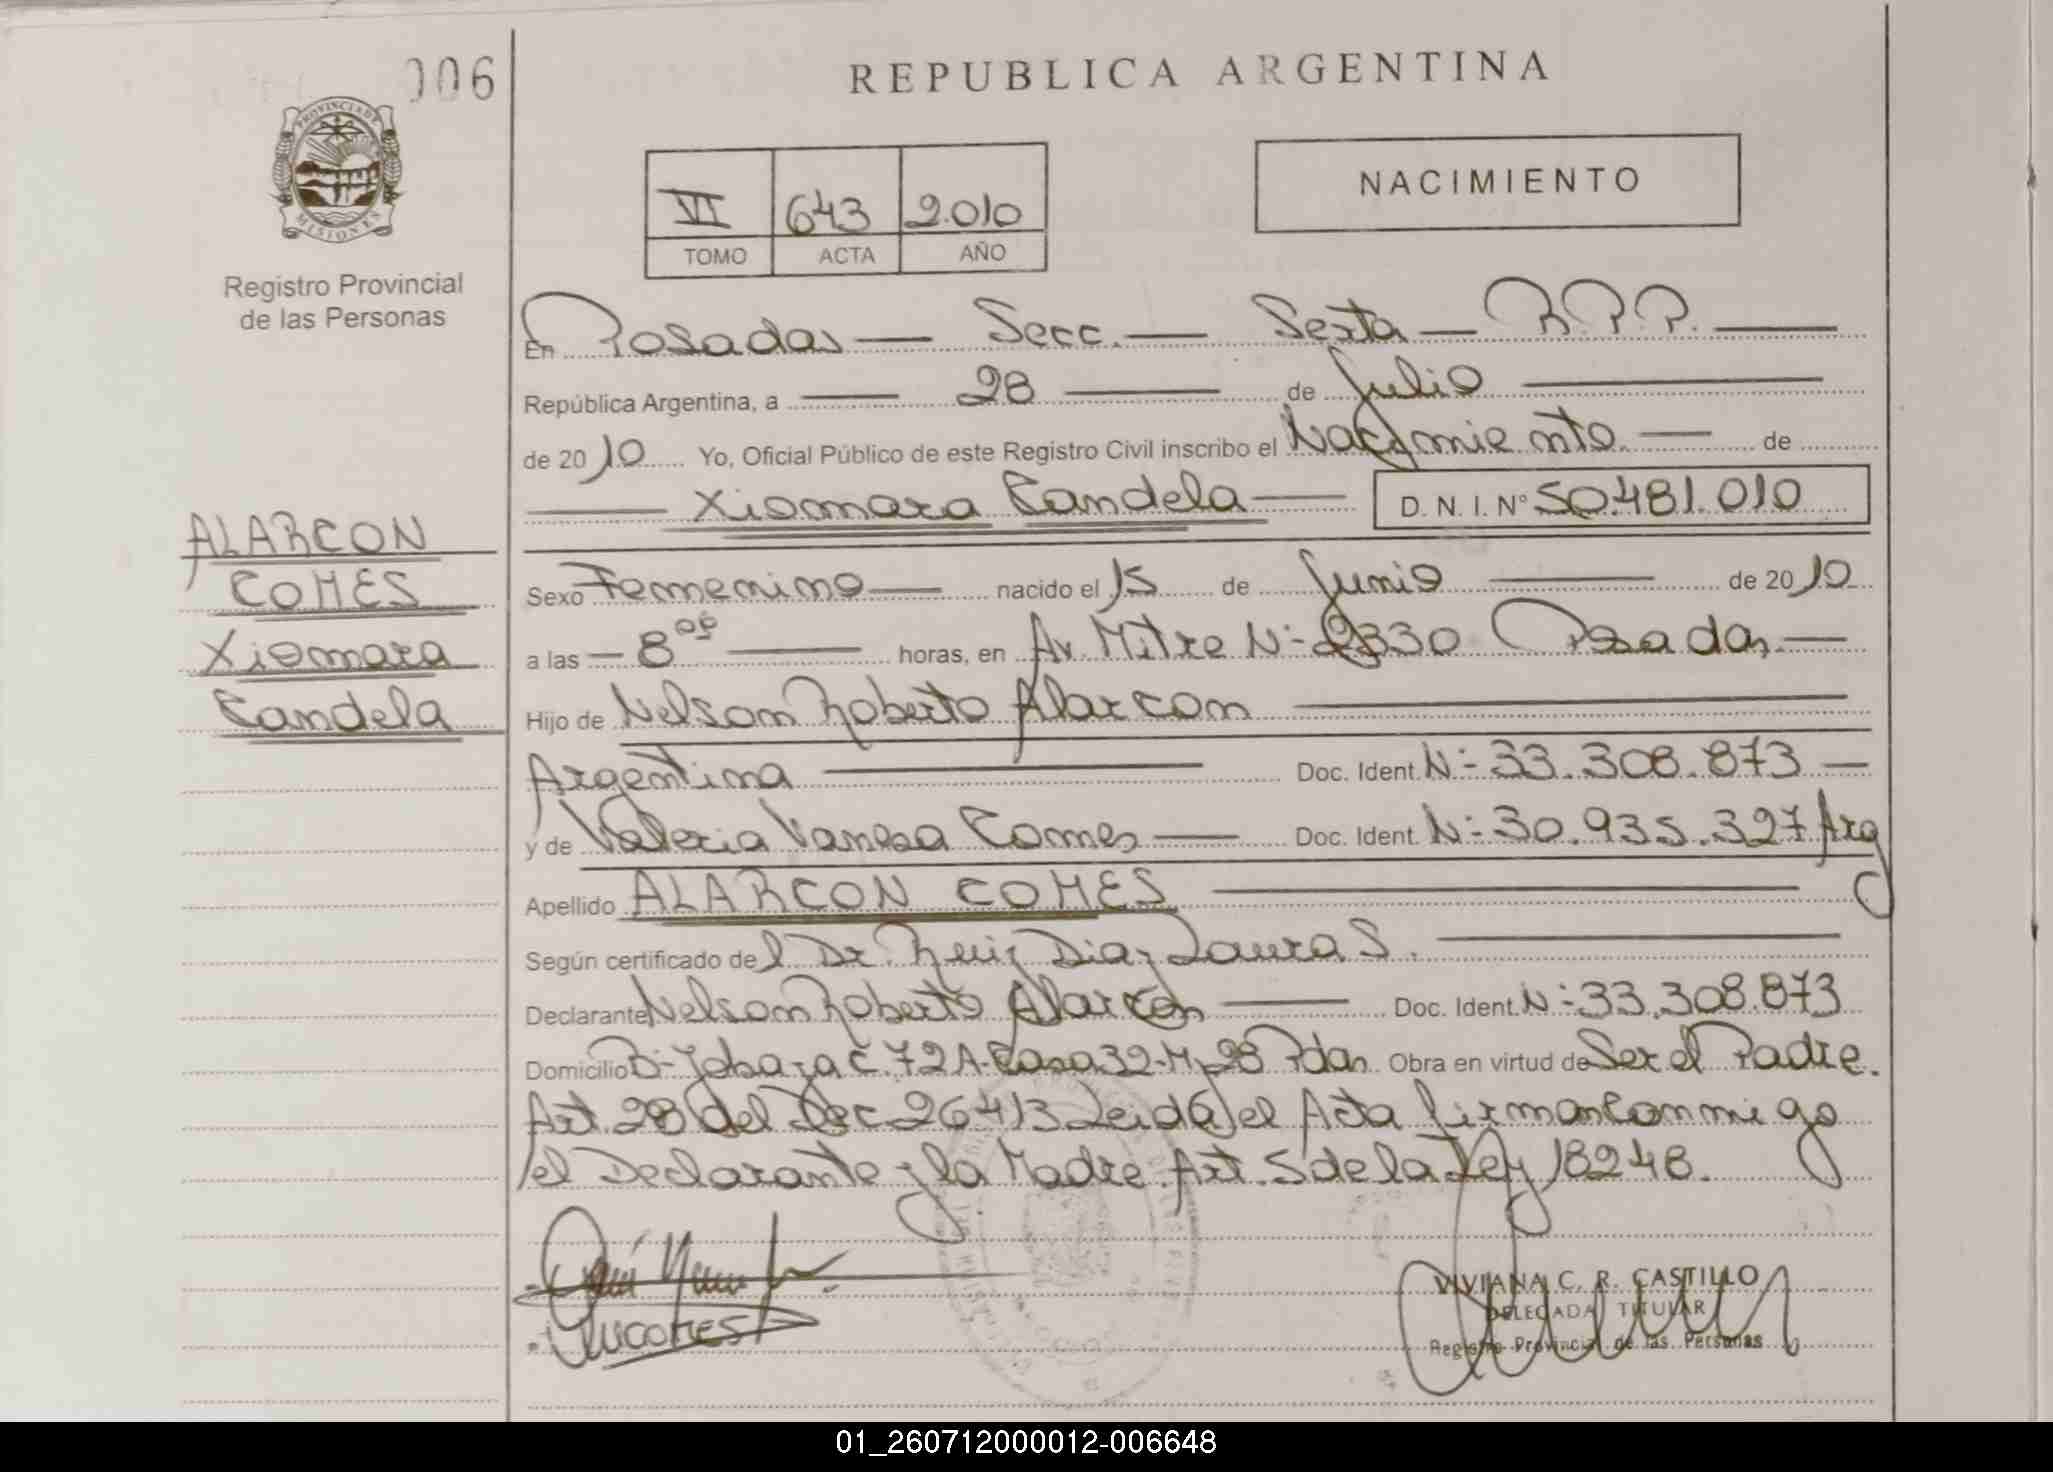 006
REPUBLICA ARGENTINA
PROVINCIA DE
MISIONES
Registro Provincial
de las Personas
VI 643 2.010
TOMO ACTA AÑO
NACIMIENTO
En Posadas — Secc. — Sexta — R.P.P. —
República Argentina, a — 28 — de Julio —
de 2010 Yo, Oficial Público de este Registro Civil inscribo el Nacimiento. — de
— Xiomara Candela — D. N. I. Nº 50.481.010
ALARCON
COMES
Xiomara
Candela
Sexo Femenino — nacido el 15 de Junio — de 2010
a las — 8 — horas, en Av. Mitre Nº 2330 Posadas. —
Hijo de Nelson Roberto Alarcon —
Argentina — Doc. Ident. Nº 33.308.873 —
y de Valeria Vanesa Comes — Doc. Ident. Nº 30.935.327 Arg
Apellido ALARCON COMES —
Según certificado del Dr. Ruiz Diaz Laura S. —
Declarante Nelson Roberto Alarcon — Doc. Ident. Nº 33.308.873
Domicilio Bº C. 72 A-Casa 32-Mz 28 Pdas. Obra en virtud de Ser el Padre.
Art. 28 del Dec 26413 Leida el Acta firman Conmigo
el Declarante y la Madre. Art. 5 de la Ley 18248.
COMES
VIVIANA C. R. CASTILLO
DELEGADA TITULAR
Registro Provincial de las Personas
01_260712000012-006648